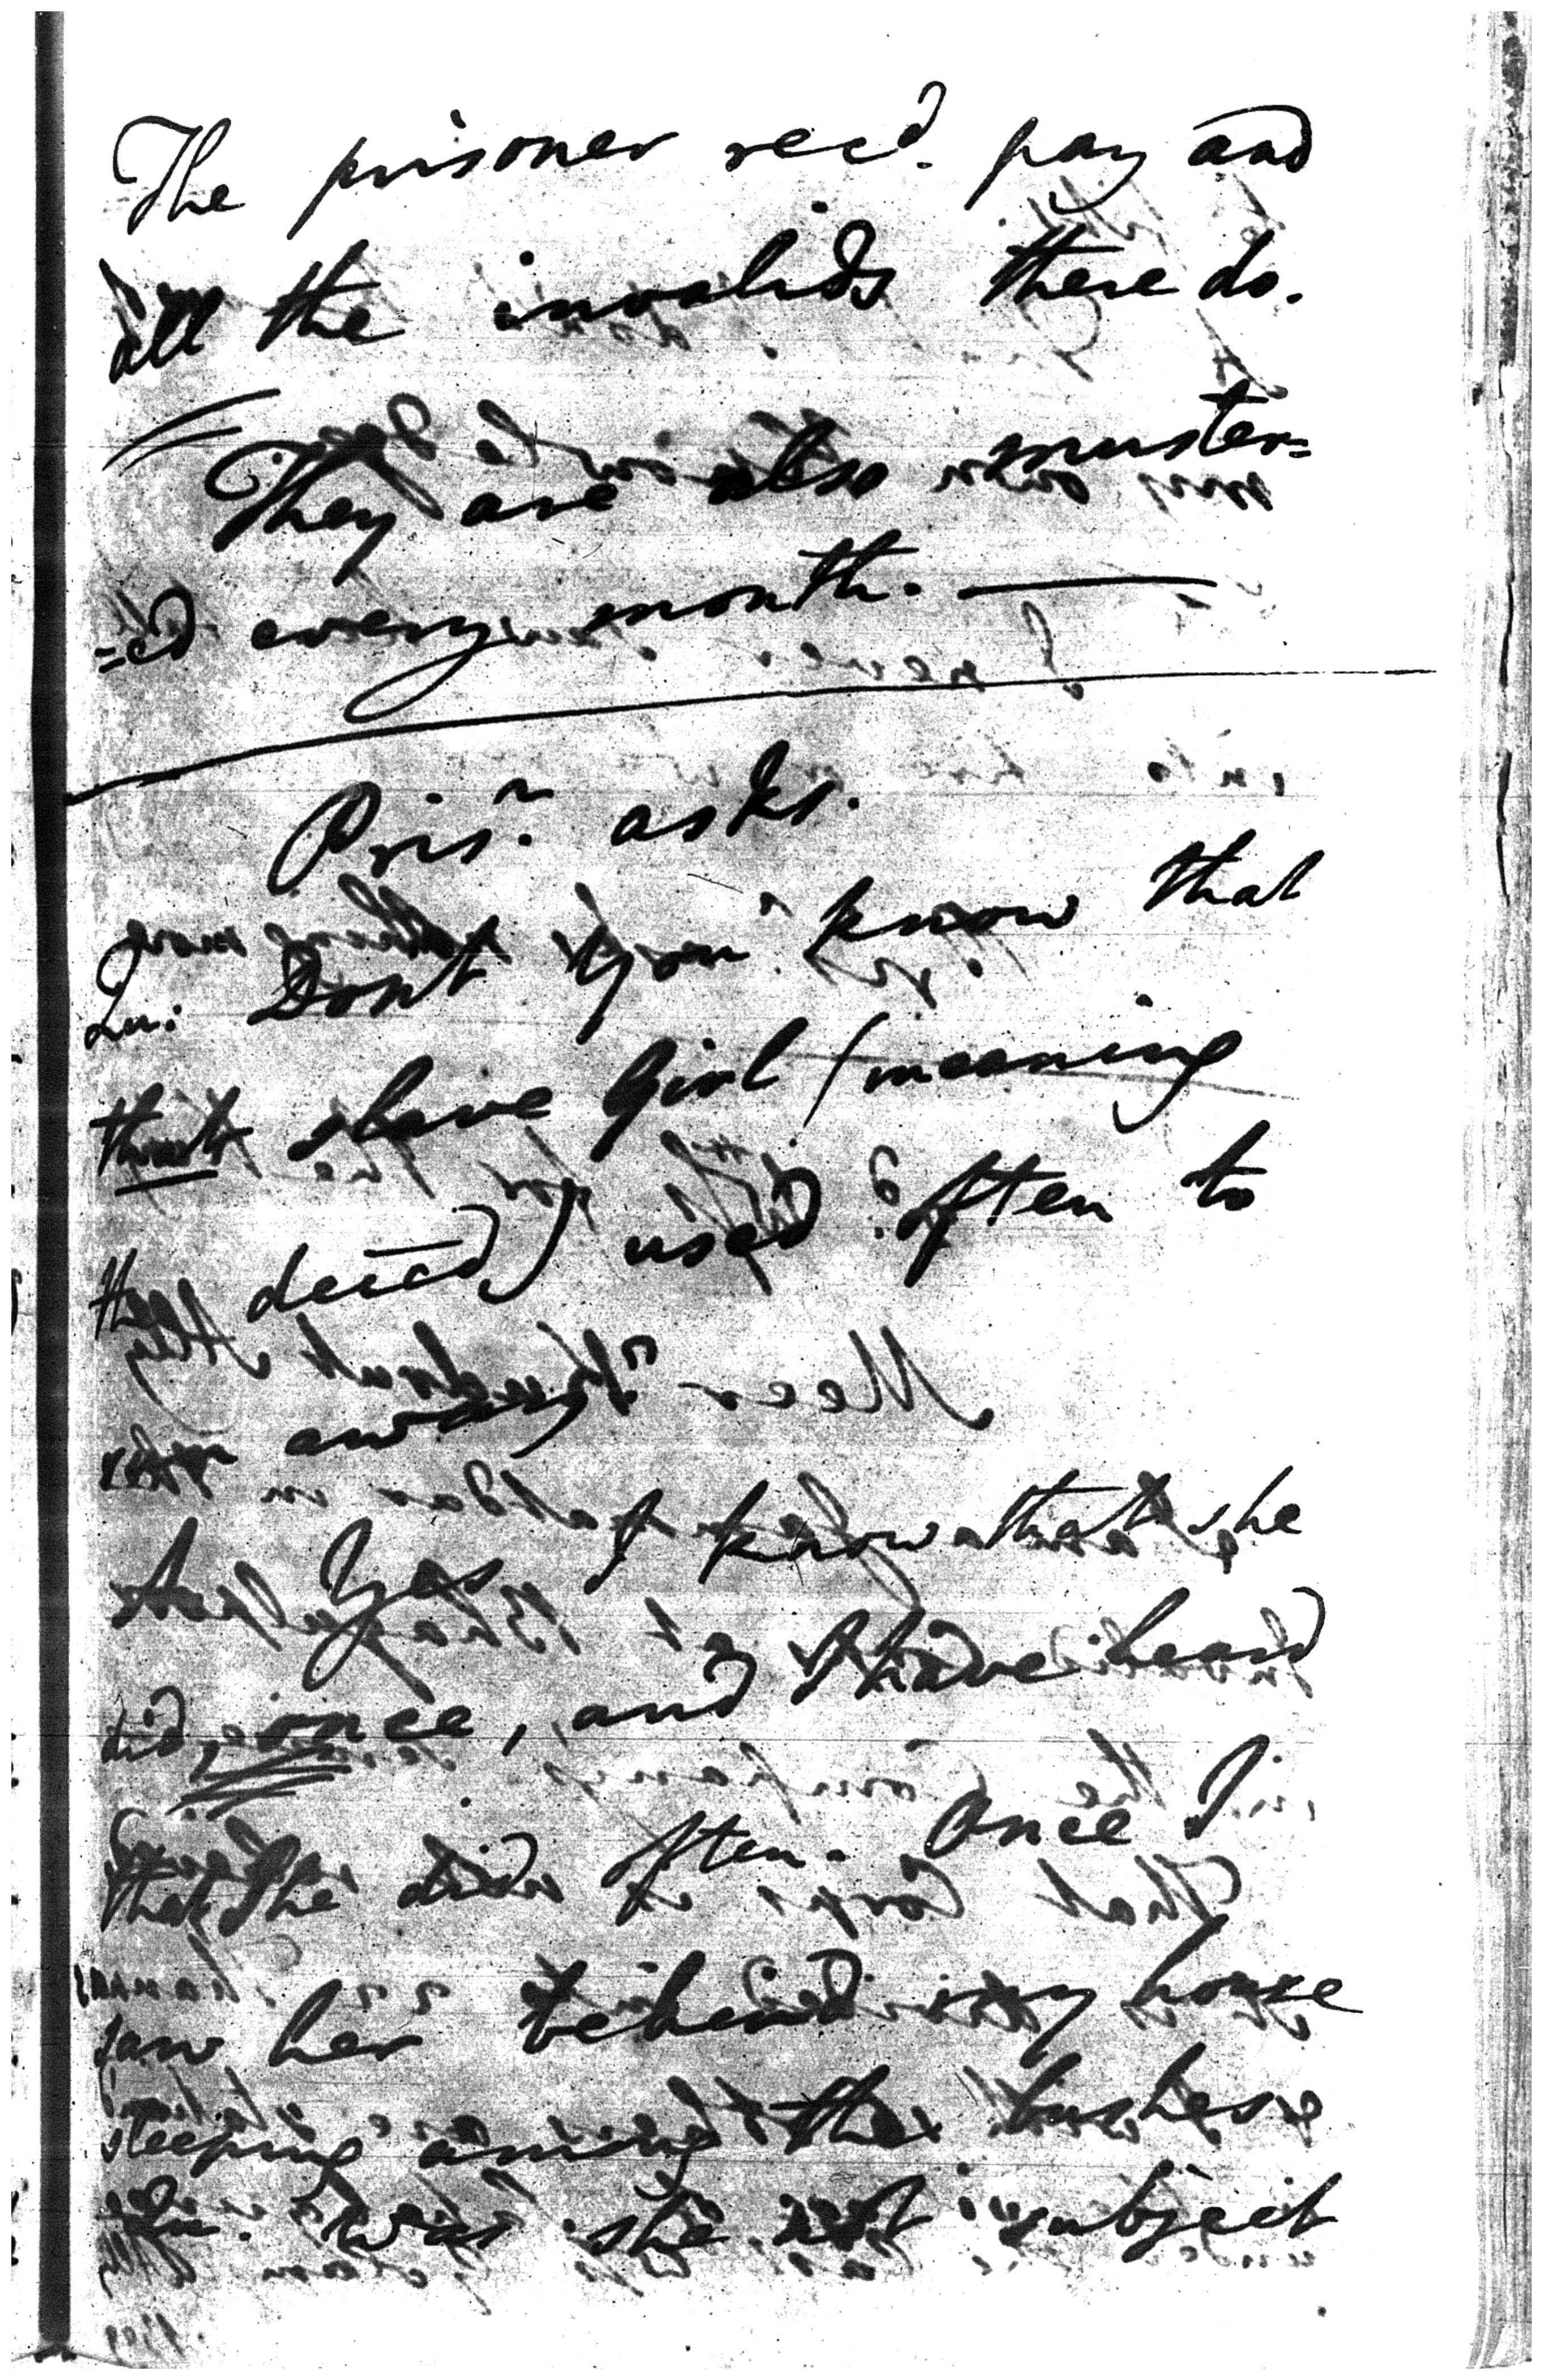 The prisoner recd. pay and
all the invalids there do.
They are also muster=
=ed every month.
Prisr. asks.
Qu: Dont you know that
that slave Girl (meaning
the deced) used often to
run away?
An Yes I know that she
did, once, and I have heard
that she did often. Once I
saw her behind my house
sleeping among the bushes
Qu. Was she not subject